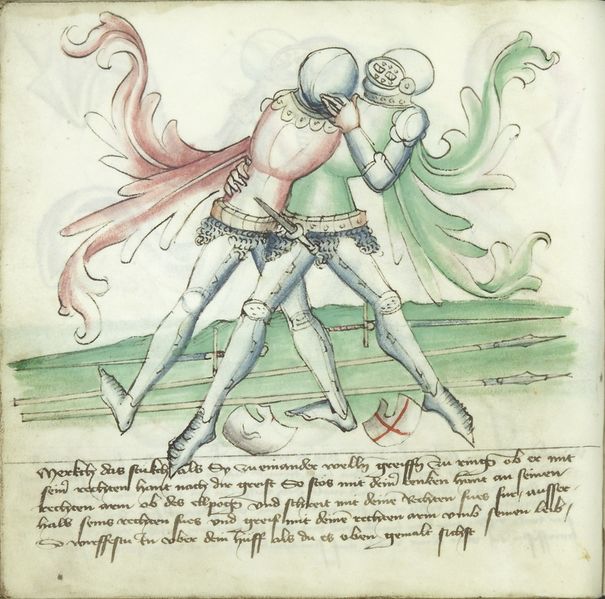 Merckh das stuckh als Sy zu einander wellen greiffen zu ringen ob er mit
sein rechten hant nach dir greift So stos mit dein lencken hant an seinen
rechten arm ob des ellpogen und schreit mit deine rechten fues fur ausser-
halb seins rechten fues und greif mit deine rechten arm umb seinen leib
So wirffestu In uber dein huff als du es oben gemalt sichst